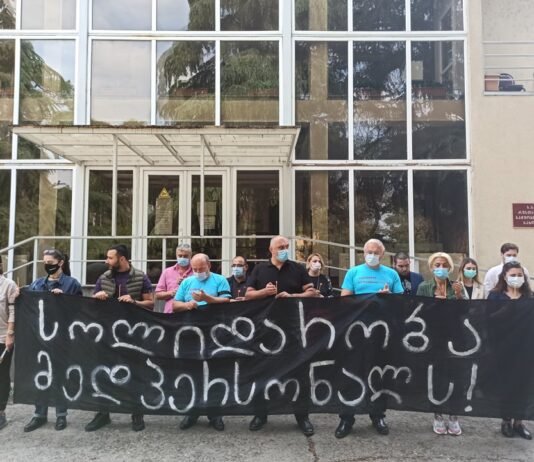 სოლიდარობა
მედპერსონალს!